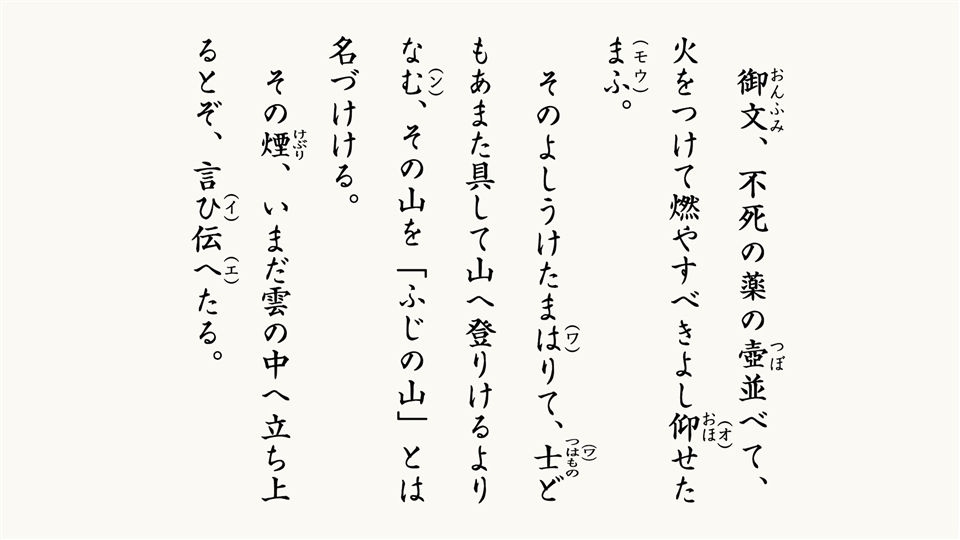 御文、不死の薬の壺並べて、
火をつけて燃やすべきよし仰せた
まふ。
そのよしうけたまはりて、士ど
もあまた具して山へ登りけるより
なむ、その山を「ふじの山」とは
名づけける。
その煙、いまだ雲の中へ立ち上
るとぞ、言ひ伝へたる。
おんふみ
つぼ
おほ
(オ)
(モウ)
(ワ)
つはもの
(ワ)
(ン)
けぶり
(イ)
(エ)